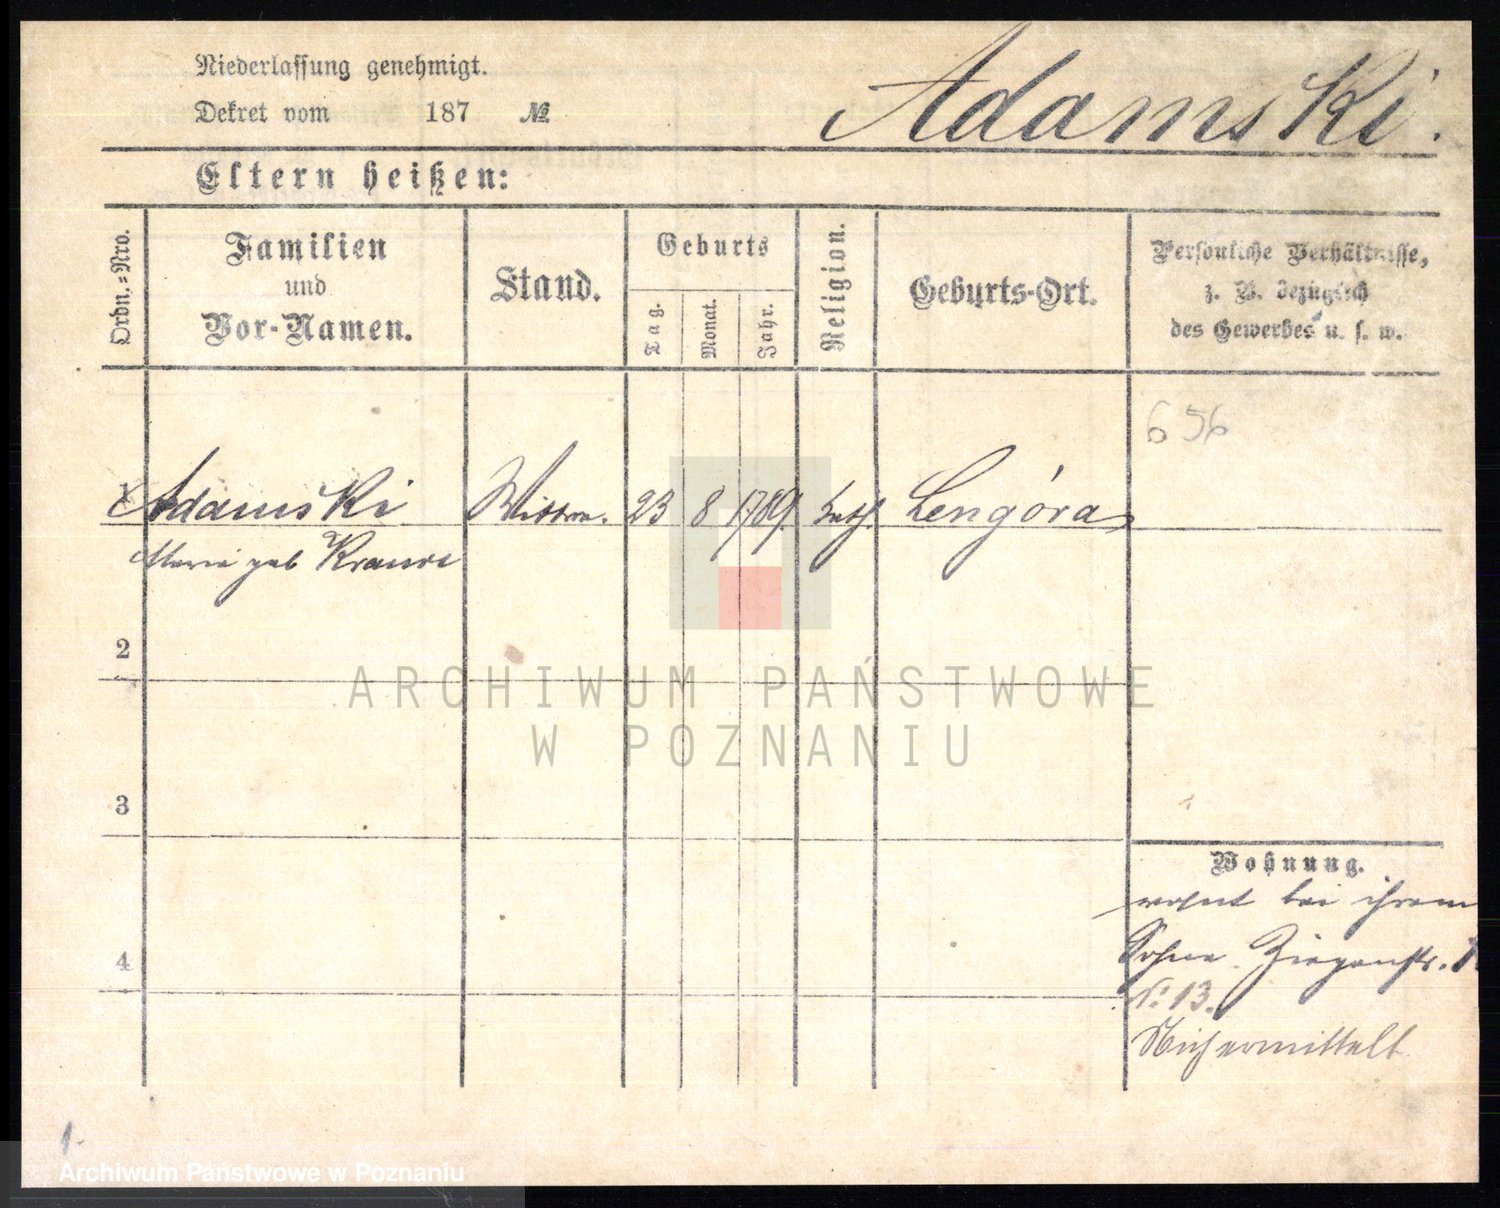 Niederlassung genehmigt.
Dekret vom 187 №
Adamski.
Eltern heißen:
Ordn.=Nro.
Familien
und
Vor-Namen.
Stand.
Geburts
Tag.
Monat.
Jahr.
Religion.
Geburts-Ort.
Persönliche Verhältnisse,
z. B. bezüglich
des Gewerbes u. s. w.
656
1 Adamski Wittwe. 23 8 1789. kath Lengóra
Maria geb Krause
2
3
4
ARCHIWUM PAŃSTWOWE
W POZNANIU
Wohnung.
wohnt bei ihrem
Sohne Ziegenstr.
No 13.
Nicht ermittelt
1.
Archiwum Państwowe w Poznaniu